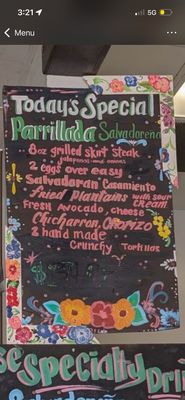 3:21
5G
Menu
Todays Special
Parrillada Salvadoreña
8oz grilled skirt steak
jalapenos and onions
2 eggs over easy
Salvadoran Casamiento
Fried Plantains with sour cream
Fresh Avocado, cheese
Chicharron Chorizo
2 hand made
Crunchy Tortillas
Specialty Drin